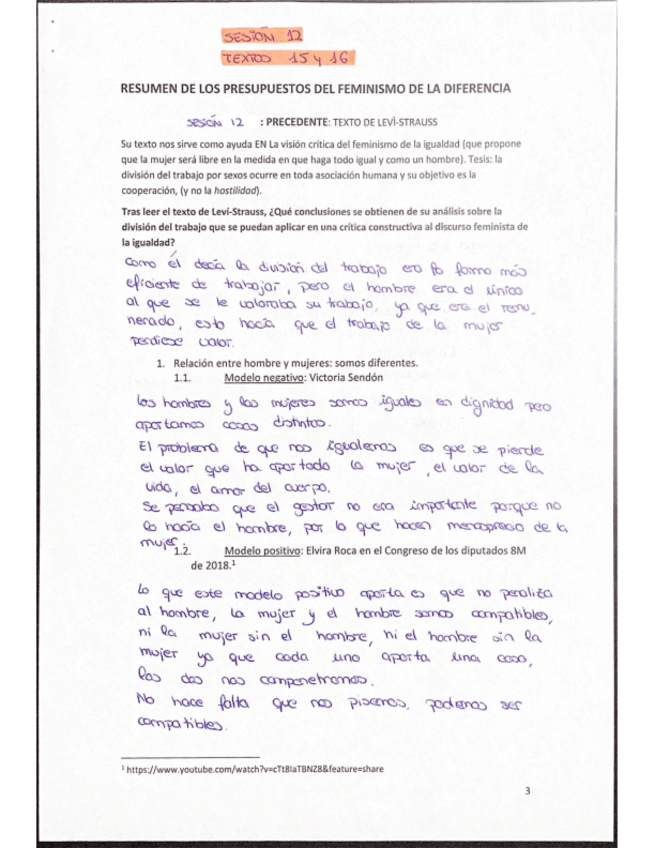 SESIÓN 12
TEXTOS 15 y 16
RESUMEN DE LOS PRESUPUESTOS DEL FEMINISMO DE LA DIFERENCIA
SESIÓN 12 : PRECEDENTE: TEXTO DE LEVÌ-STRAUSS
Su texto nos sirve como ayuda EN La visión crítica del feminismo de la igualdad (que propone
que la mujer será libre en la medida en que haga todo igual y como un hombre). Tesis: la
división del trabajo por sexos ocurre en toda asociación humana y su objetivo es la
cooperación, (y no la hostilidad).
Tras leer el texto de Levi-Strauss, ¿Qué conclusiones se obtienen de su análisis sobre la
división del trabajo que se puedan aplicar en una crítica constructiva al discurso feminista de
la igualdad?
Como él decía la división del trabajo era la forma más
eficiente de trabajar, pero el hombre era el único
al que se le valoraba su trabajo, ya que era el remu-
nerado, esto hacía que el trabajo de la mujer
perdiese valor.
1. Relación entre hombre y mujeres: somos diferentes.
1.1. Modelo negativo: Victoria Sendón
Los hombres y las mujeres somos iguales en dignidad pero
aportamos cosas distintas.
El problema de que nos igualemos es que se pierde
el valor que ha aportado la mujer, el valor de la
vida, el amor del cuerpo.
Se pensaba que el gestar no era importante porque no
lo hacía el hombre, por lo que hacen menosprecio de la
mujer.
1.2. Modelo positivo: Elvira Roca en el Congreso de los diputados 8M
de 2018.¹
Lo que este modelo positivo aporta es que no penaliza
al hombre, la mujer y el hombre somos compatibles,
ni la mujer sin el hombre, ni el hombre sin la
mujer ya que cada uno aporta una cosa,
los dos nos compenetramos.
No hace falta que nos pisemos, podemos ser
compatibles.
¹ https://www.youtube.com/watch?v=cTt8IaTBNZ8&feature=share
3